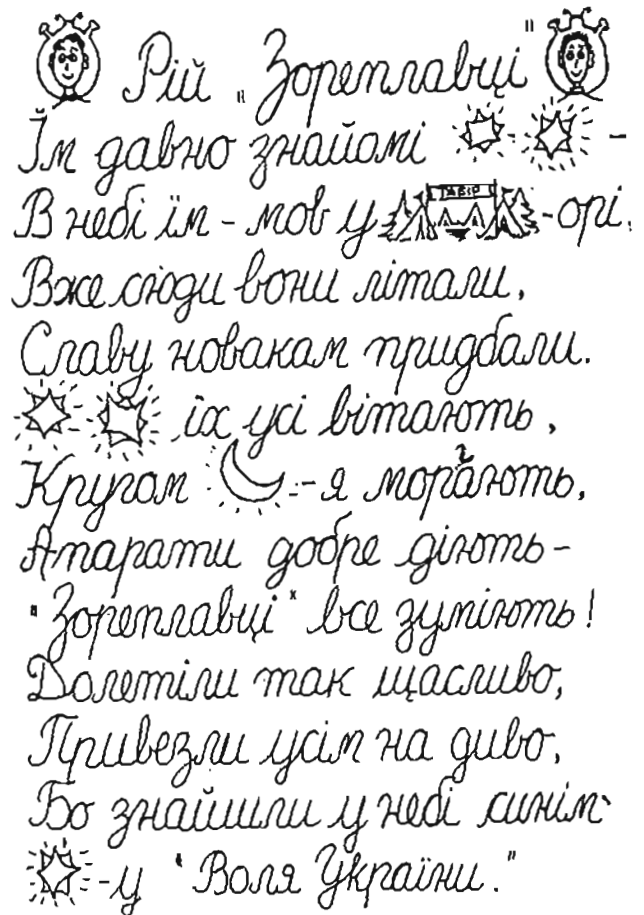 Рій „Зореплавці"
Їм давно знайомі -
В небі їм - мов у ТАБІР -орі,
Вже сюди вони літали,
Славу новакам придбали.
їх усі вітають,
Кругом -я моргають,
Апарати добре діють -
"Зореплавці" все зуміють!
Долетіли так щасливо,
Привезли усім на диво,
Бо знайшли у небі синім-
-у "Воля України."